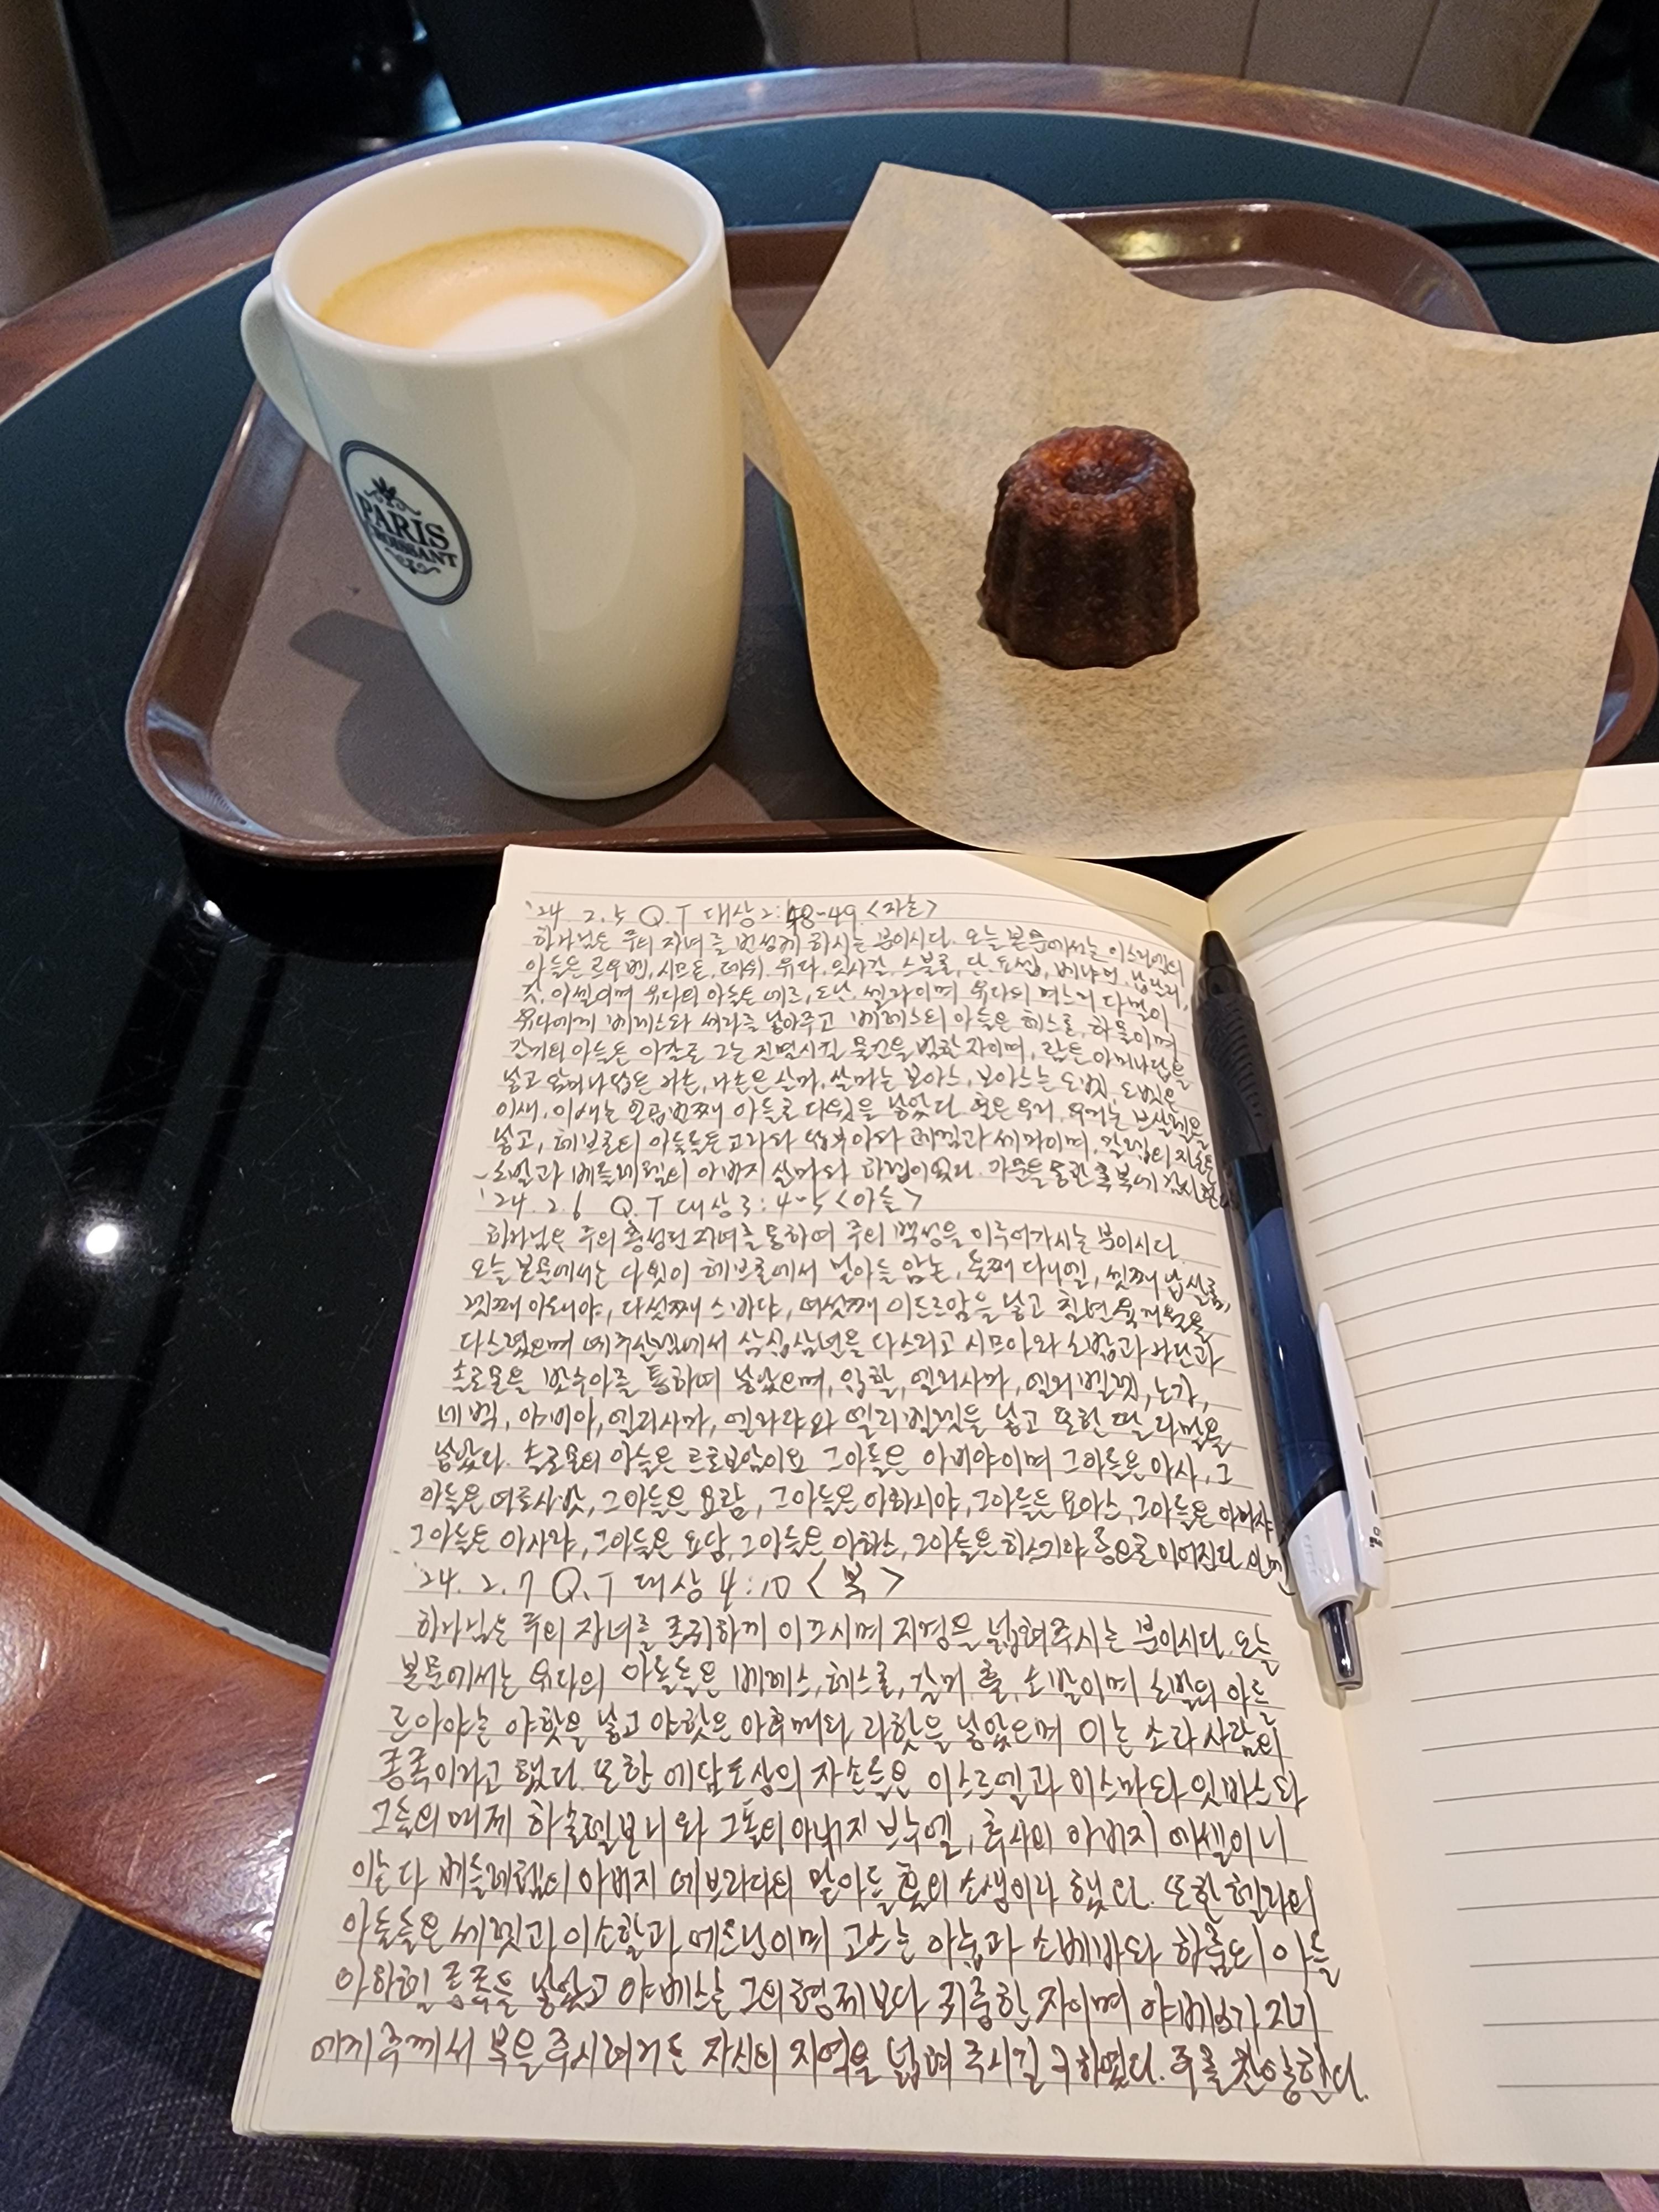 PARIS
CROISSANT
'24. 2.5 Q.T 대상2:48-49 <자손>
하나님은 주의 자녀를 번성케 하시는 분이시다. 오늘 본문에서는 이스라엘의
아들은 르우벤, 시므온, 레위, 유다, 잇사갈, 스불론, 단, 요셉, 베냐민, 납달리,
갓, 아셀이며 유다의 아들은 에르, 오난, 셀라이며 유다의 며느리 다말이
유다에게 베레스와 세라를 낳아주고 베레스의 아들은 헤스론, 하물이며
갈게의 아들은 아갈로 그는 진멸시킬 물건을 범한 자이며, 람은 암미나답을
낳고 암미나답은 나손, 나손은 살마, 살마는 보아스, 보아스는 오벳, 오벳은
이새, 이새는 일곱번째 아들로 다윗을 낳았다. 훌은 우리, 우리는 브살렐을
낳고, 헤브론의 아들들은 고라와 답부아와 레겜과 세마이며, 갈렙의 자손은
소발과 베들레헴의 아버지 살마와 하렙이었다. 가문을 통한 축복에 감사한다.
'24. 2.6 Q.T 대상 3:4-5 <아들>
하나님은 주의 흥성된 자녀를 통하여 주의 백성을 이루어가시는 분이시다.
오늘 본문에서는 다윗이 헤브론에서 맏아들 암논, 둘째 다니엘, 셋째 압살롬,
넷째 아도니야, 다섯째 스바댜, 여섯째 이드르암을 낳고 칠년 육개월을
다스렸으며 예루살렘에서 삼십삼년을 다스리고 시므아와 소밥과 나단과
솔로몬을 밧수아를 통하여 낳았으며, 입할, 엘리사마, 엘리벨렛, 노가,
네벡, 야비아, 엘리사마, 엘랴다와 엘리벨렛을 낳고 또한 딸 다말을
낳았다. 솔로몬의 아들은 르호보암이요 그아들은 아비야이며 그아들은 아사, 그
아들은 여호사밧, 그아들은 요람, 그아들은 아하시야, 그아들은 요아스, 그아들은 아마샤
그아들은 아사랴, 그아들은 요담, 그아들은 아하스, 그아들은 히스기야 등으로 이어진다.
'24. 2. 7 Q.T 대상 4:10 <복>
하나님은 주의 자녀를 존귀하게 이끄시며 지경을 넓혀주시는 분이시다. 오늘
본문에서는 유다의 아들들은 베레스, 헤스론, 갈게, 훌, 소발이며 소발의 아들
르아야는 야핫을 낳고 야핫은 아후매와 라핫을 낳았으며 이는 소라 사람의
종족이라고 했다. 또한 에담 조상의 자손들은 이스르엘과 이스마와 잇바스와
그들의 매제 하술렐보니와 그돌의 아버지 브누엘, 후사의 아버지 에셀이니
이는 다 베들레헴의 아버지 에브라다의 맏아들 훌의 소생이라 했다. 또한 헬라의
아들들은 세렛과 이소할과 에드난이며 고스는 아눕과 소베바와 하룸의 아들
아하헬 종족들을 낳았고 야베스는 그의 형제보다 귀중한 자이며 야베스가 자기
에게 주께서 복을 주시려거든 자신의 지역을 넓혀 주시길 구하였다. 주를 찬양한다.